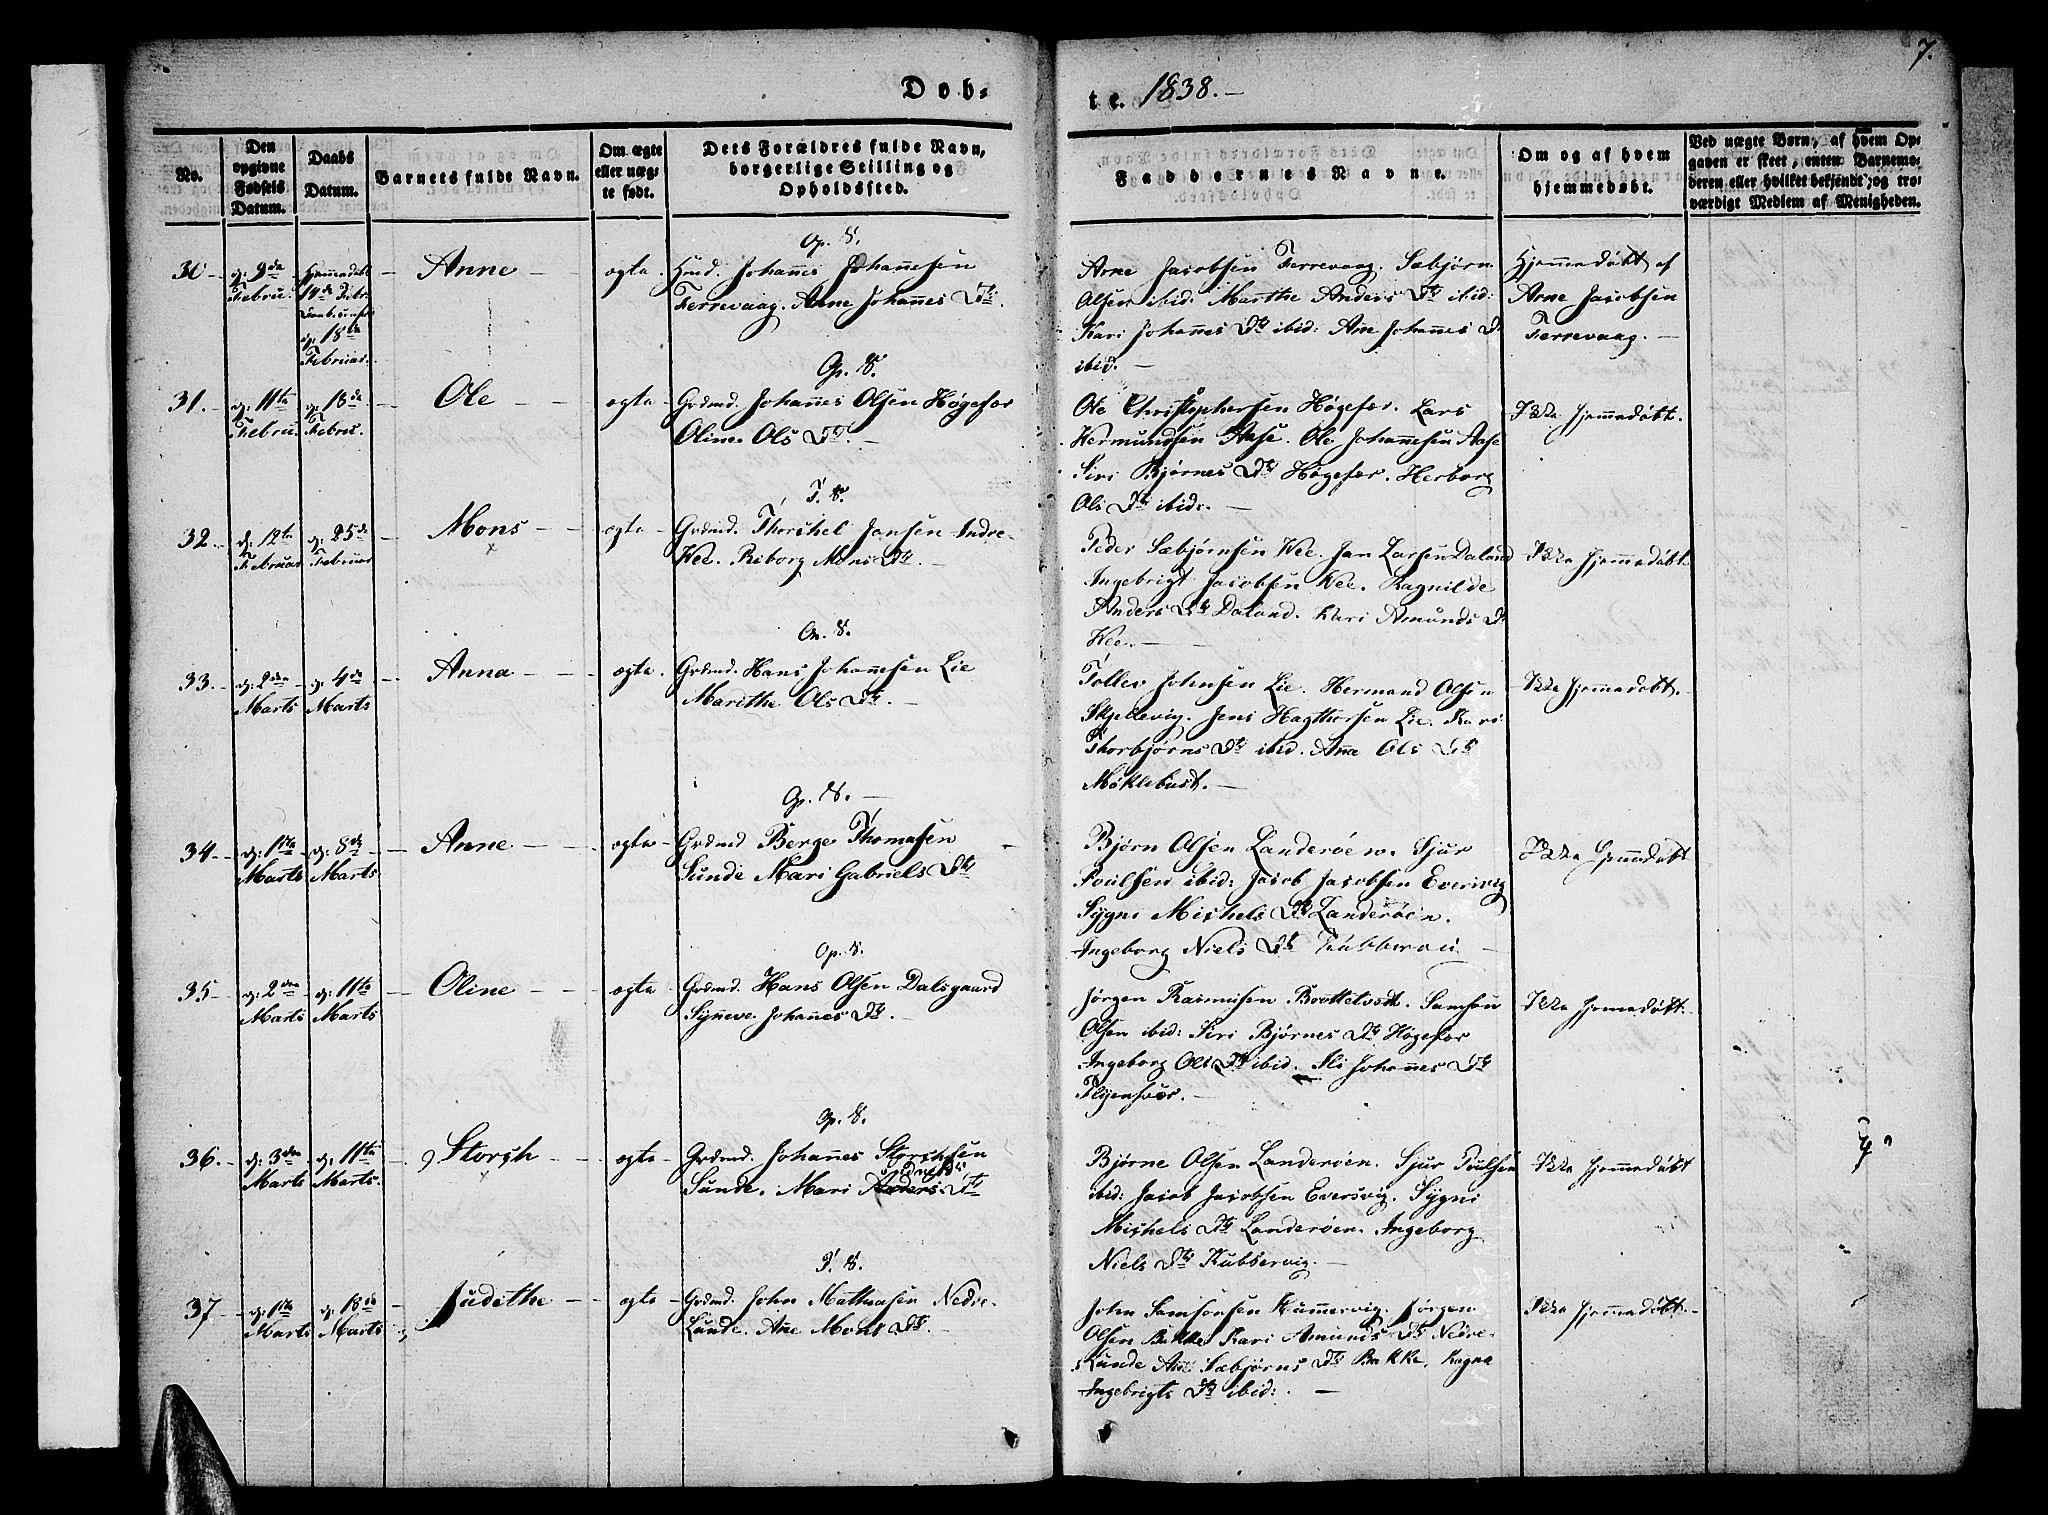 7.
Døb-
te. 1838. —
No.
Den opgivne Fødsels Datum.
Daabs Datum.
Barnets fulde Navn.
Om ægte eller uægte født.
Dets Forældres fulde Navn, borgerlige Stilling og Opholdssted.
Faddernes Navne.
Om og af hvem hjemmedøbt.
Ved uægte Børn, af hvem Opgaven er skeet, enten Barnemoderen eller hvilket bekjendt, og troværdigt Medlem af Menigheden.
30 — d: 9de Febru. Hjemmedøbt 14de Febr. d: 18de Februar. — Anne — ægte. Op. S.
Hmd. Johannes Johannesen
Ferrevaag. Anne Johannes Dtr.
Arne Jacobsen Ferrevaag. Sæbjørn
Olsen ibid: Marthe Anders Dtr ibid:
Kari Johannes Dtr ibid: Ane Johannes Dr
ibid. —
Hjemmedøbt af
Arne Jacobsen
Ferrevaag. —
31. — d: 11te Febru. d: 18de Febru. — Ole — ægte Op. S.
Grdmd. Johannes Olsen Høgefor
Oline Ols Dtr. —
Ole Christophersen Høgefor. Lars
Hermundsen Aase. Ole Johannesen Aase
Siri Bjørnes Dtr Høgefor. Herborg
Ols Dtr ibid: —
Ikke hjemmedøbt.
32. — d: 12te Februar d: 25de Februar — Mons — ægte — T. S.
Grdmd. Thorchel Jansen Indre-
Wee. Riborg Mons Dtr. —
Peder Sæbjørnsen Wee. Jan Larsen Daland
Ingebrigt Jacobsen Wee. Ragnilde
Anders Dtr Daland. Kari Amunds Dr
Wee. —
Ikke hjemmedøbt.
33. — d: 2den Marts d: 4de Marts — Anna — ægte. S.
Grdmd. Hans Johannesen Lie
Marithe Ols Dtr. —
Tollev Johnsen Lie. Hermand Olsen
Skjelevig. Jens Hagthorsen Lie. Kari
Thorbjørns Dtr ibid. Anne Ols Dtr
Møklebust. —
Ikke hjemmedøbt.
34 — d: 1ste Marts d: 8de Marts — Anne — ægte Op. S. —
Grdmd Berge Thomasen
Sunde Mari Gabriels Dtr
Bjørn Olsen Landerøen. Sjur
Poulsen ibid: Jacob Jacobsen Eversvig
Sygni Michels Dtr Landerøen.
Ingeborg Niels Dtr —
Ikke hjemmedøbt
35 — d: 2den Marts d: 11te Marts — Oline — ægte Op. S.
Grdmd. Hans Olsen Dalsgaard
Synneve Johannes Dtr. —
Jørgen Rasmusen Brottetvedt. Samson
Olsen ibid: Siri Bjørnes Dtr Høgefor
Ingeborg Ols Dtr ibid. Johannes Dtr
—
Ikke hjemmedøbt.
36. — d: 3den Marts d: 11te Marts. — Storch — ægte Op. S.
Grdmd. Johannes Storchsen
Sunde. Mari Anders Dtr
Bjørne Olsen Landerøen. Sjur Poulsen
ibid: Jacob Jacobsen Eversvig. Sygni
Michels Dtr Landerøen. Ingeborg
Niels Dtr Kubbervig. —
Ikke hjemmedøbt
37 — d: 1ste Marts d: 18de Marts — Judithe — ægte S.
Grdmd. John Mathiasen Nedre-
Lunde. Ane Mons Dtr. —
John Samsonsen Kummervig. Jørgen
Olsen Bakke Kari Amunds Dtr Nedre-
Lunde Sæbjørns Dtr Bakke. Ragna
Ingebrigts Dtr ibid: —
Ikke hjemmedøbt.